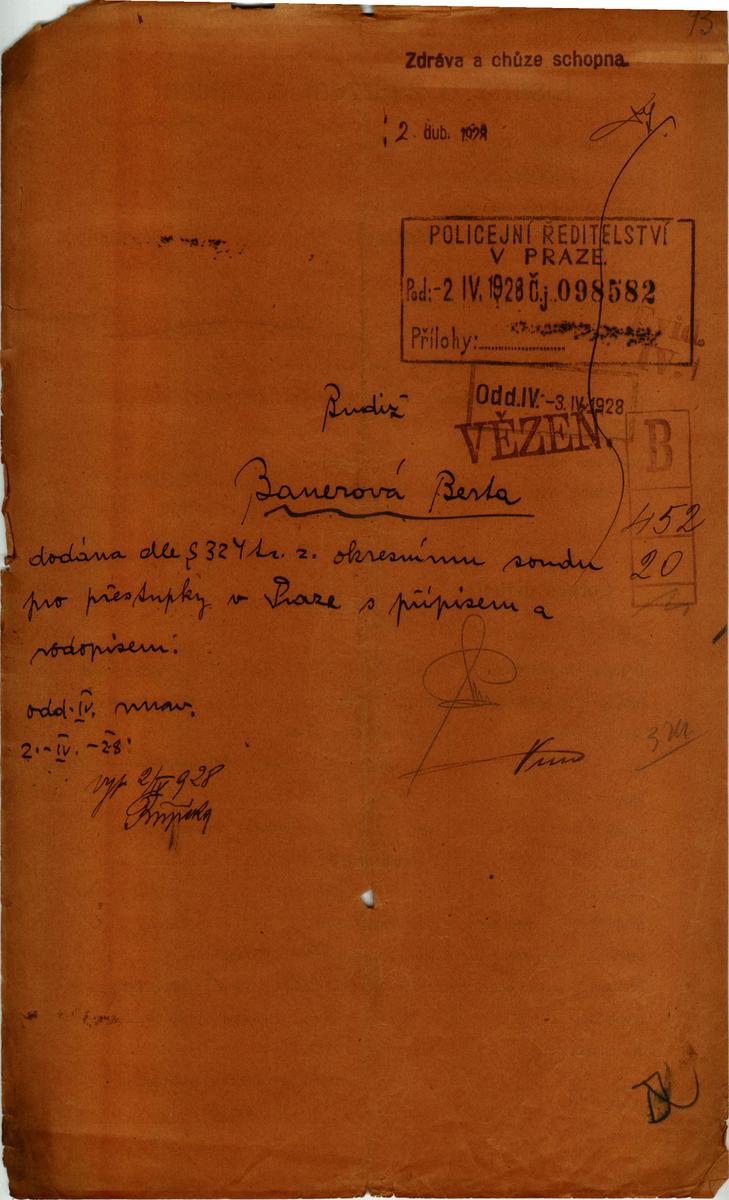 13
Zdráva a chůze schopna.
2. dub. 1928
POLICEJNÍ ŘEDITELSTVÍ
V PRAZE.
Pod: -2. IV. 1928 Č.j. 098582
Přílohy:
Evid.
IV.
Odd. IV. -3. IV. 1928
VĚZEŇ.
B
452
20
Budiž
Bauerová Berta
dodána dle § 324 tr. z. okresnímu soudu
pro přestupky v Praze s přípisem a
rodopisem:
odd. IV.
2.-IV.-28.
vyp 2/IV 928